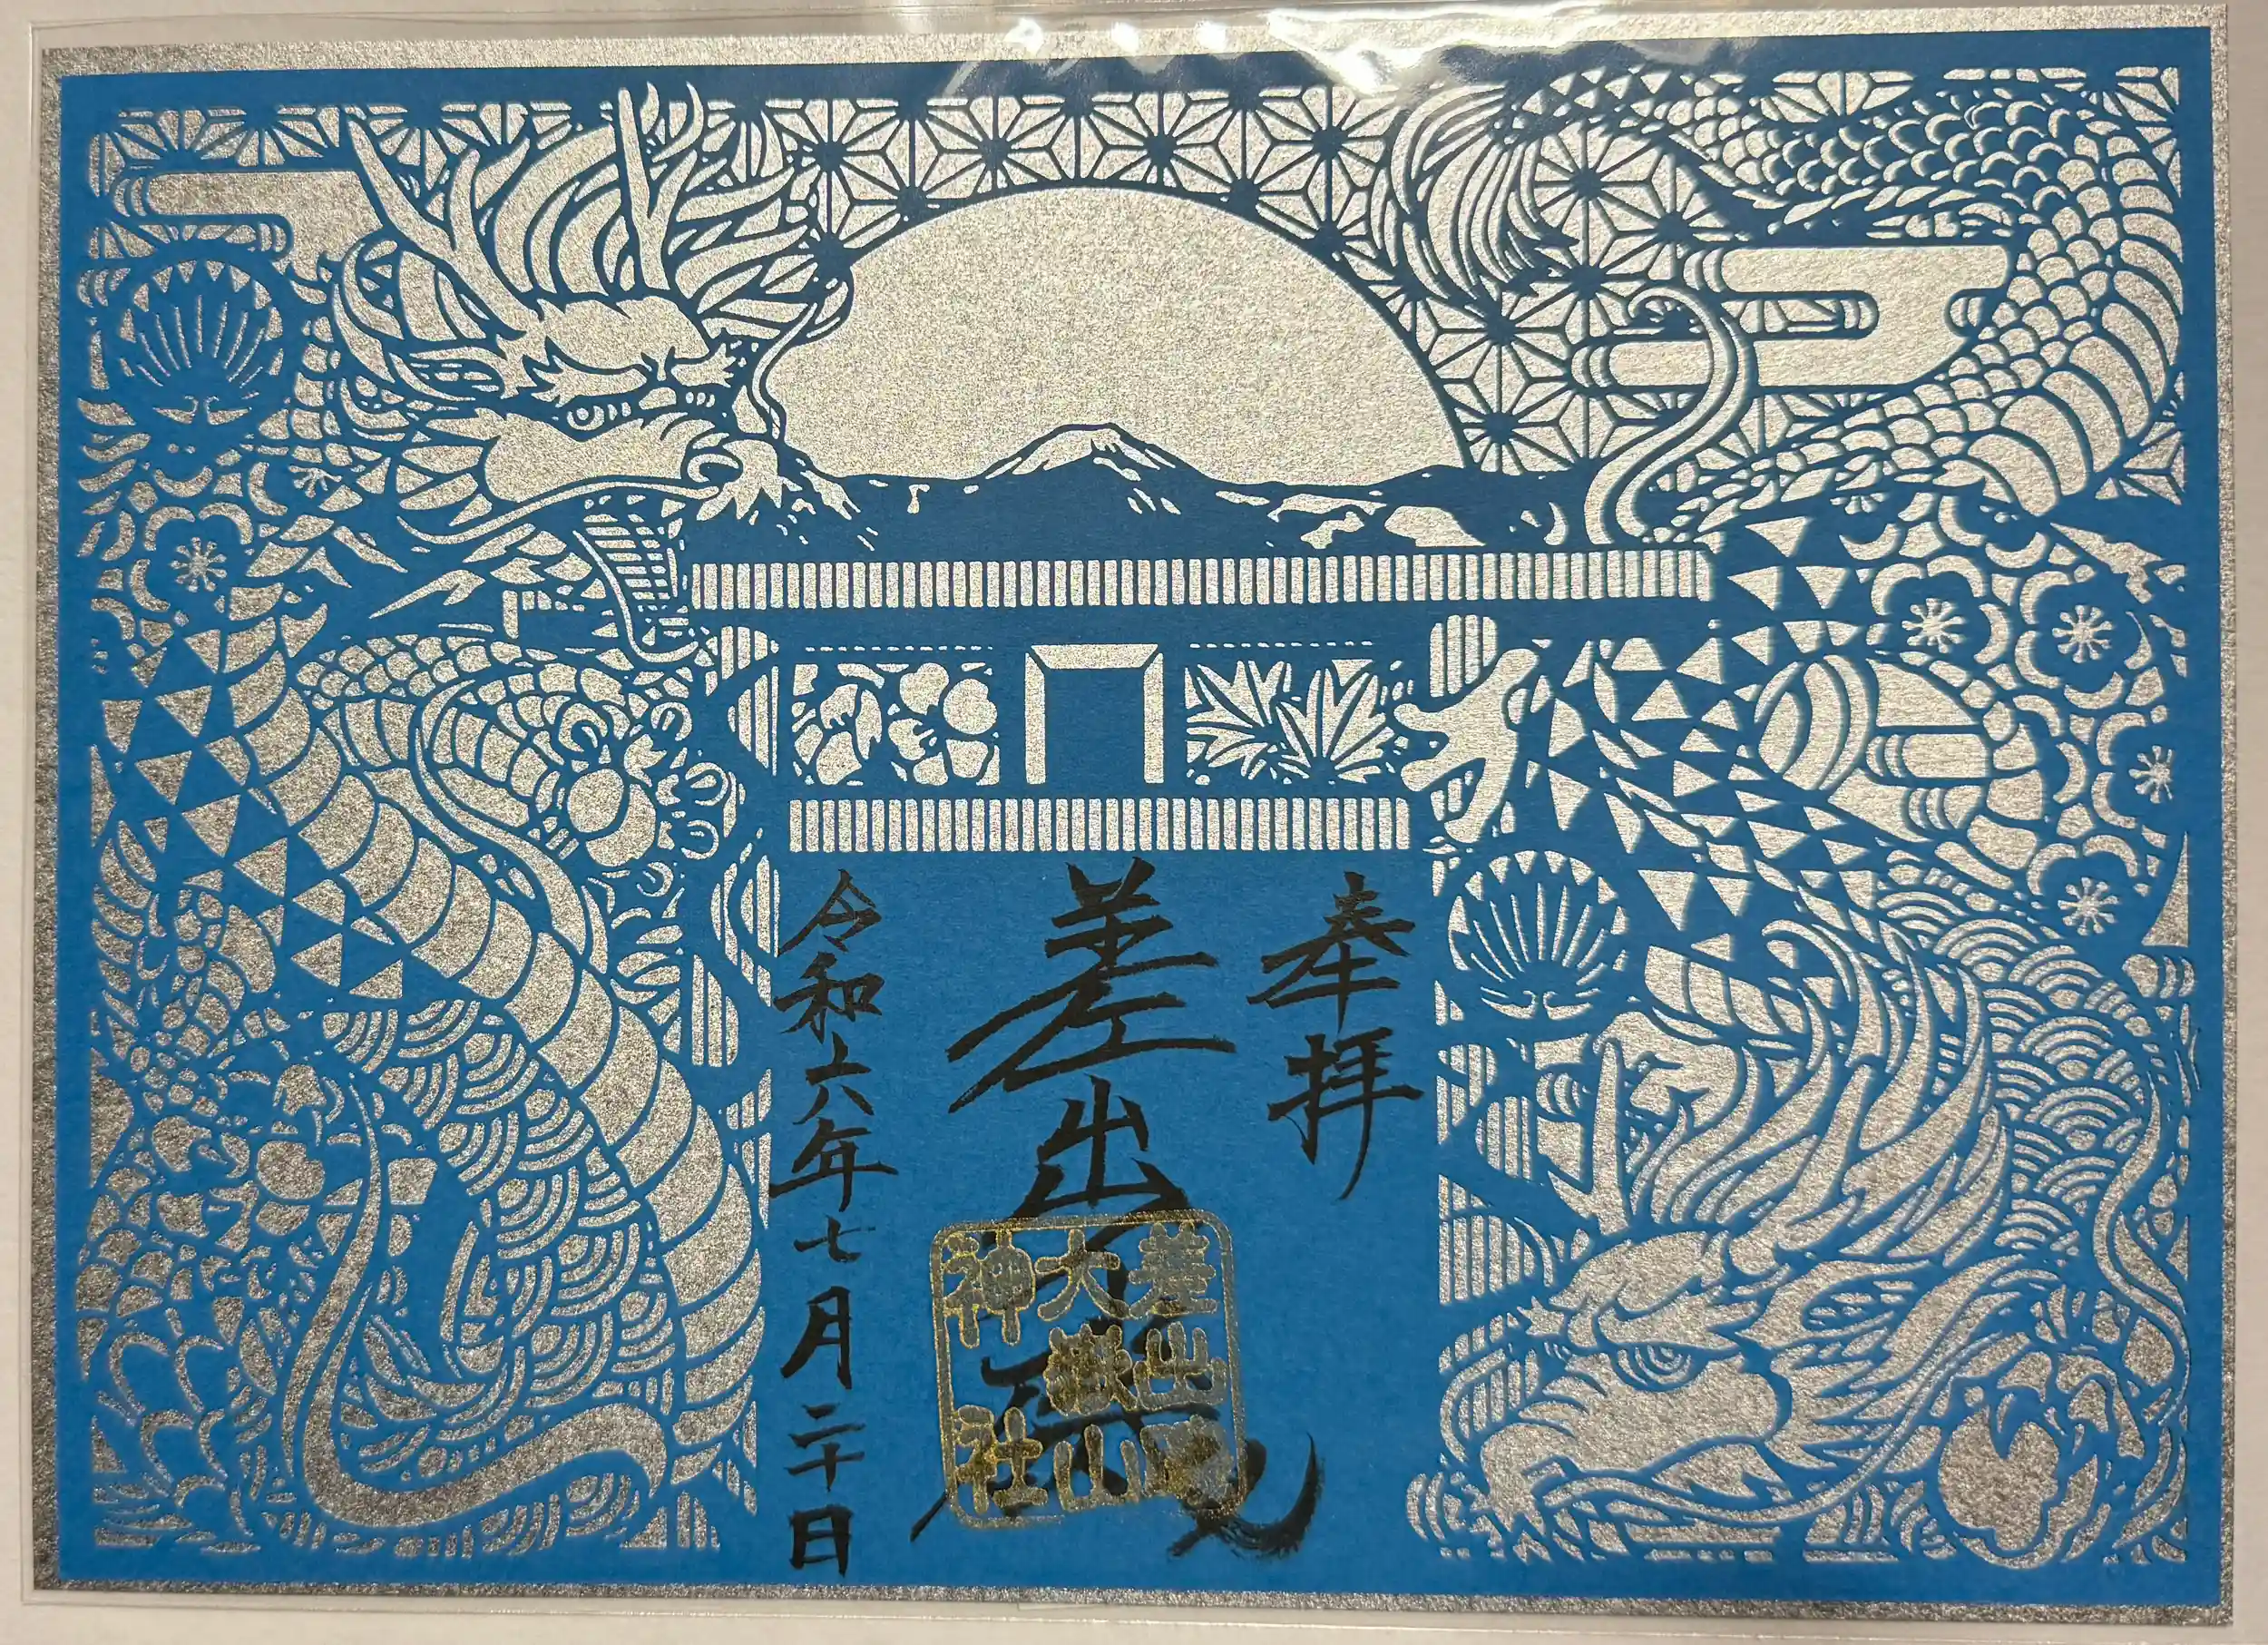 奉拝
差出磯
差出磯
大嶽山
神社
令和六年七月二十日